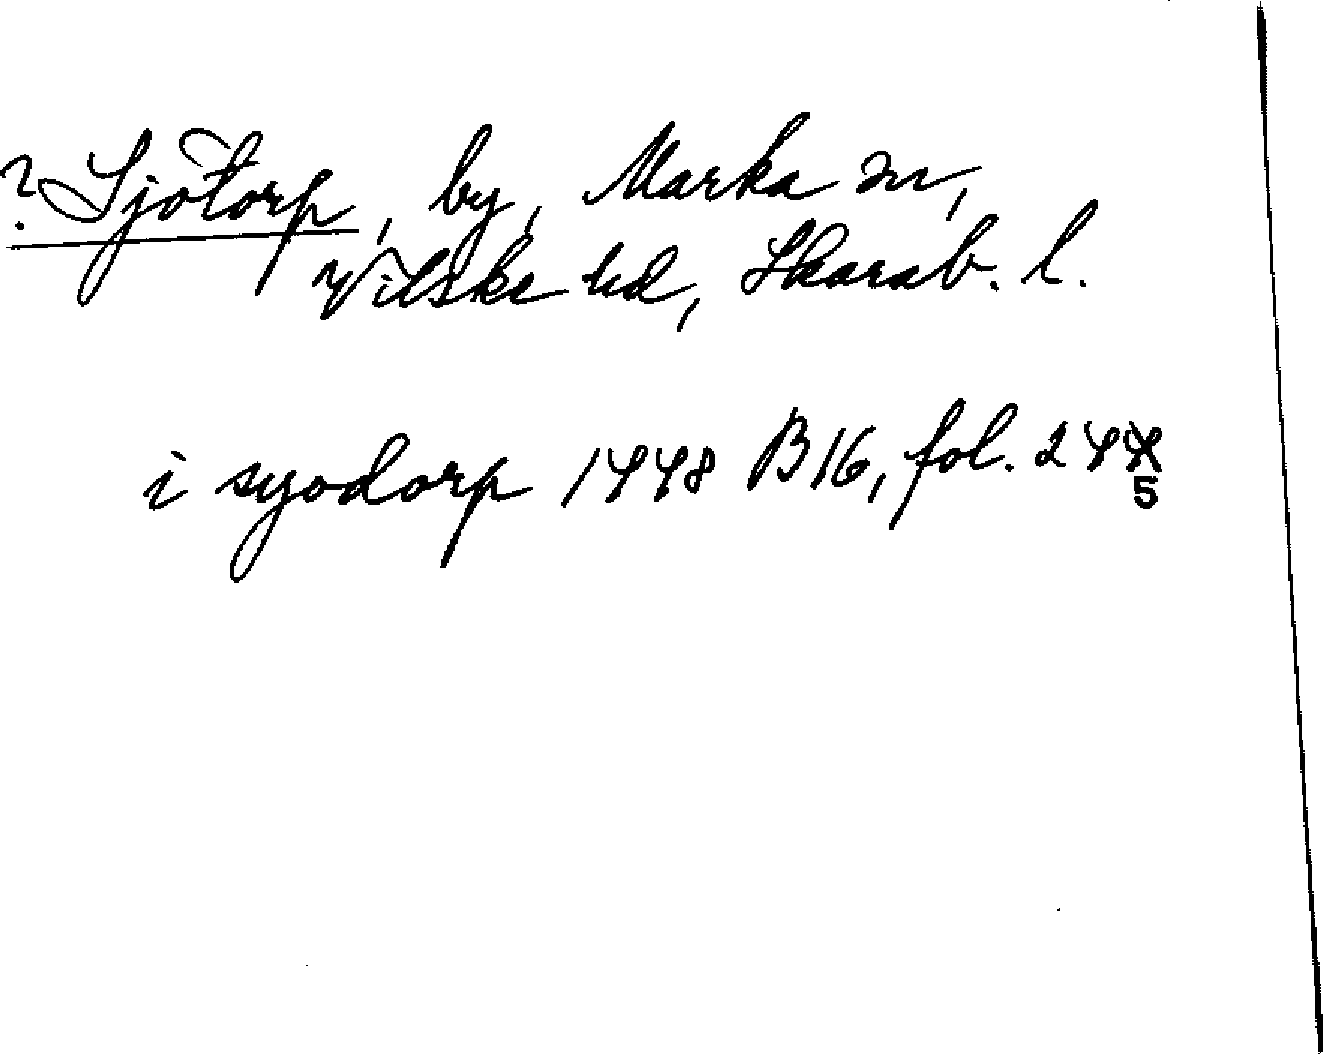 ? Sjötorp, by, Marka sn,
Vilske hd, Skarab. l.
i syodorp 1448 B16, fol. 244
5